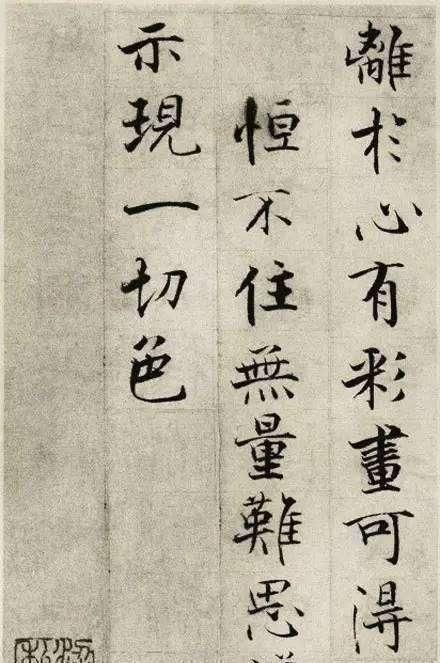 離於心有彩畫可得
恒不住無量難思
示現一切色